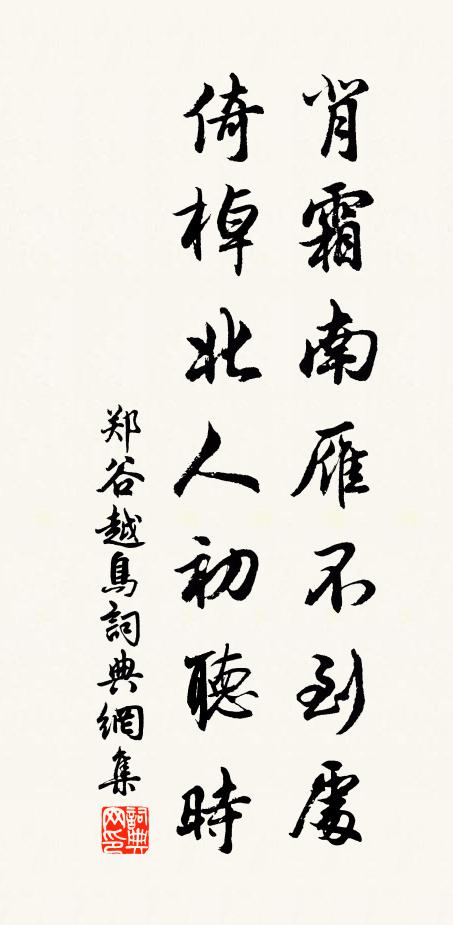 背霜南雁不到處
倚棹北人初聽時
郑谷越鳥詞典網集
詞典网印